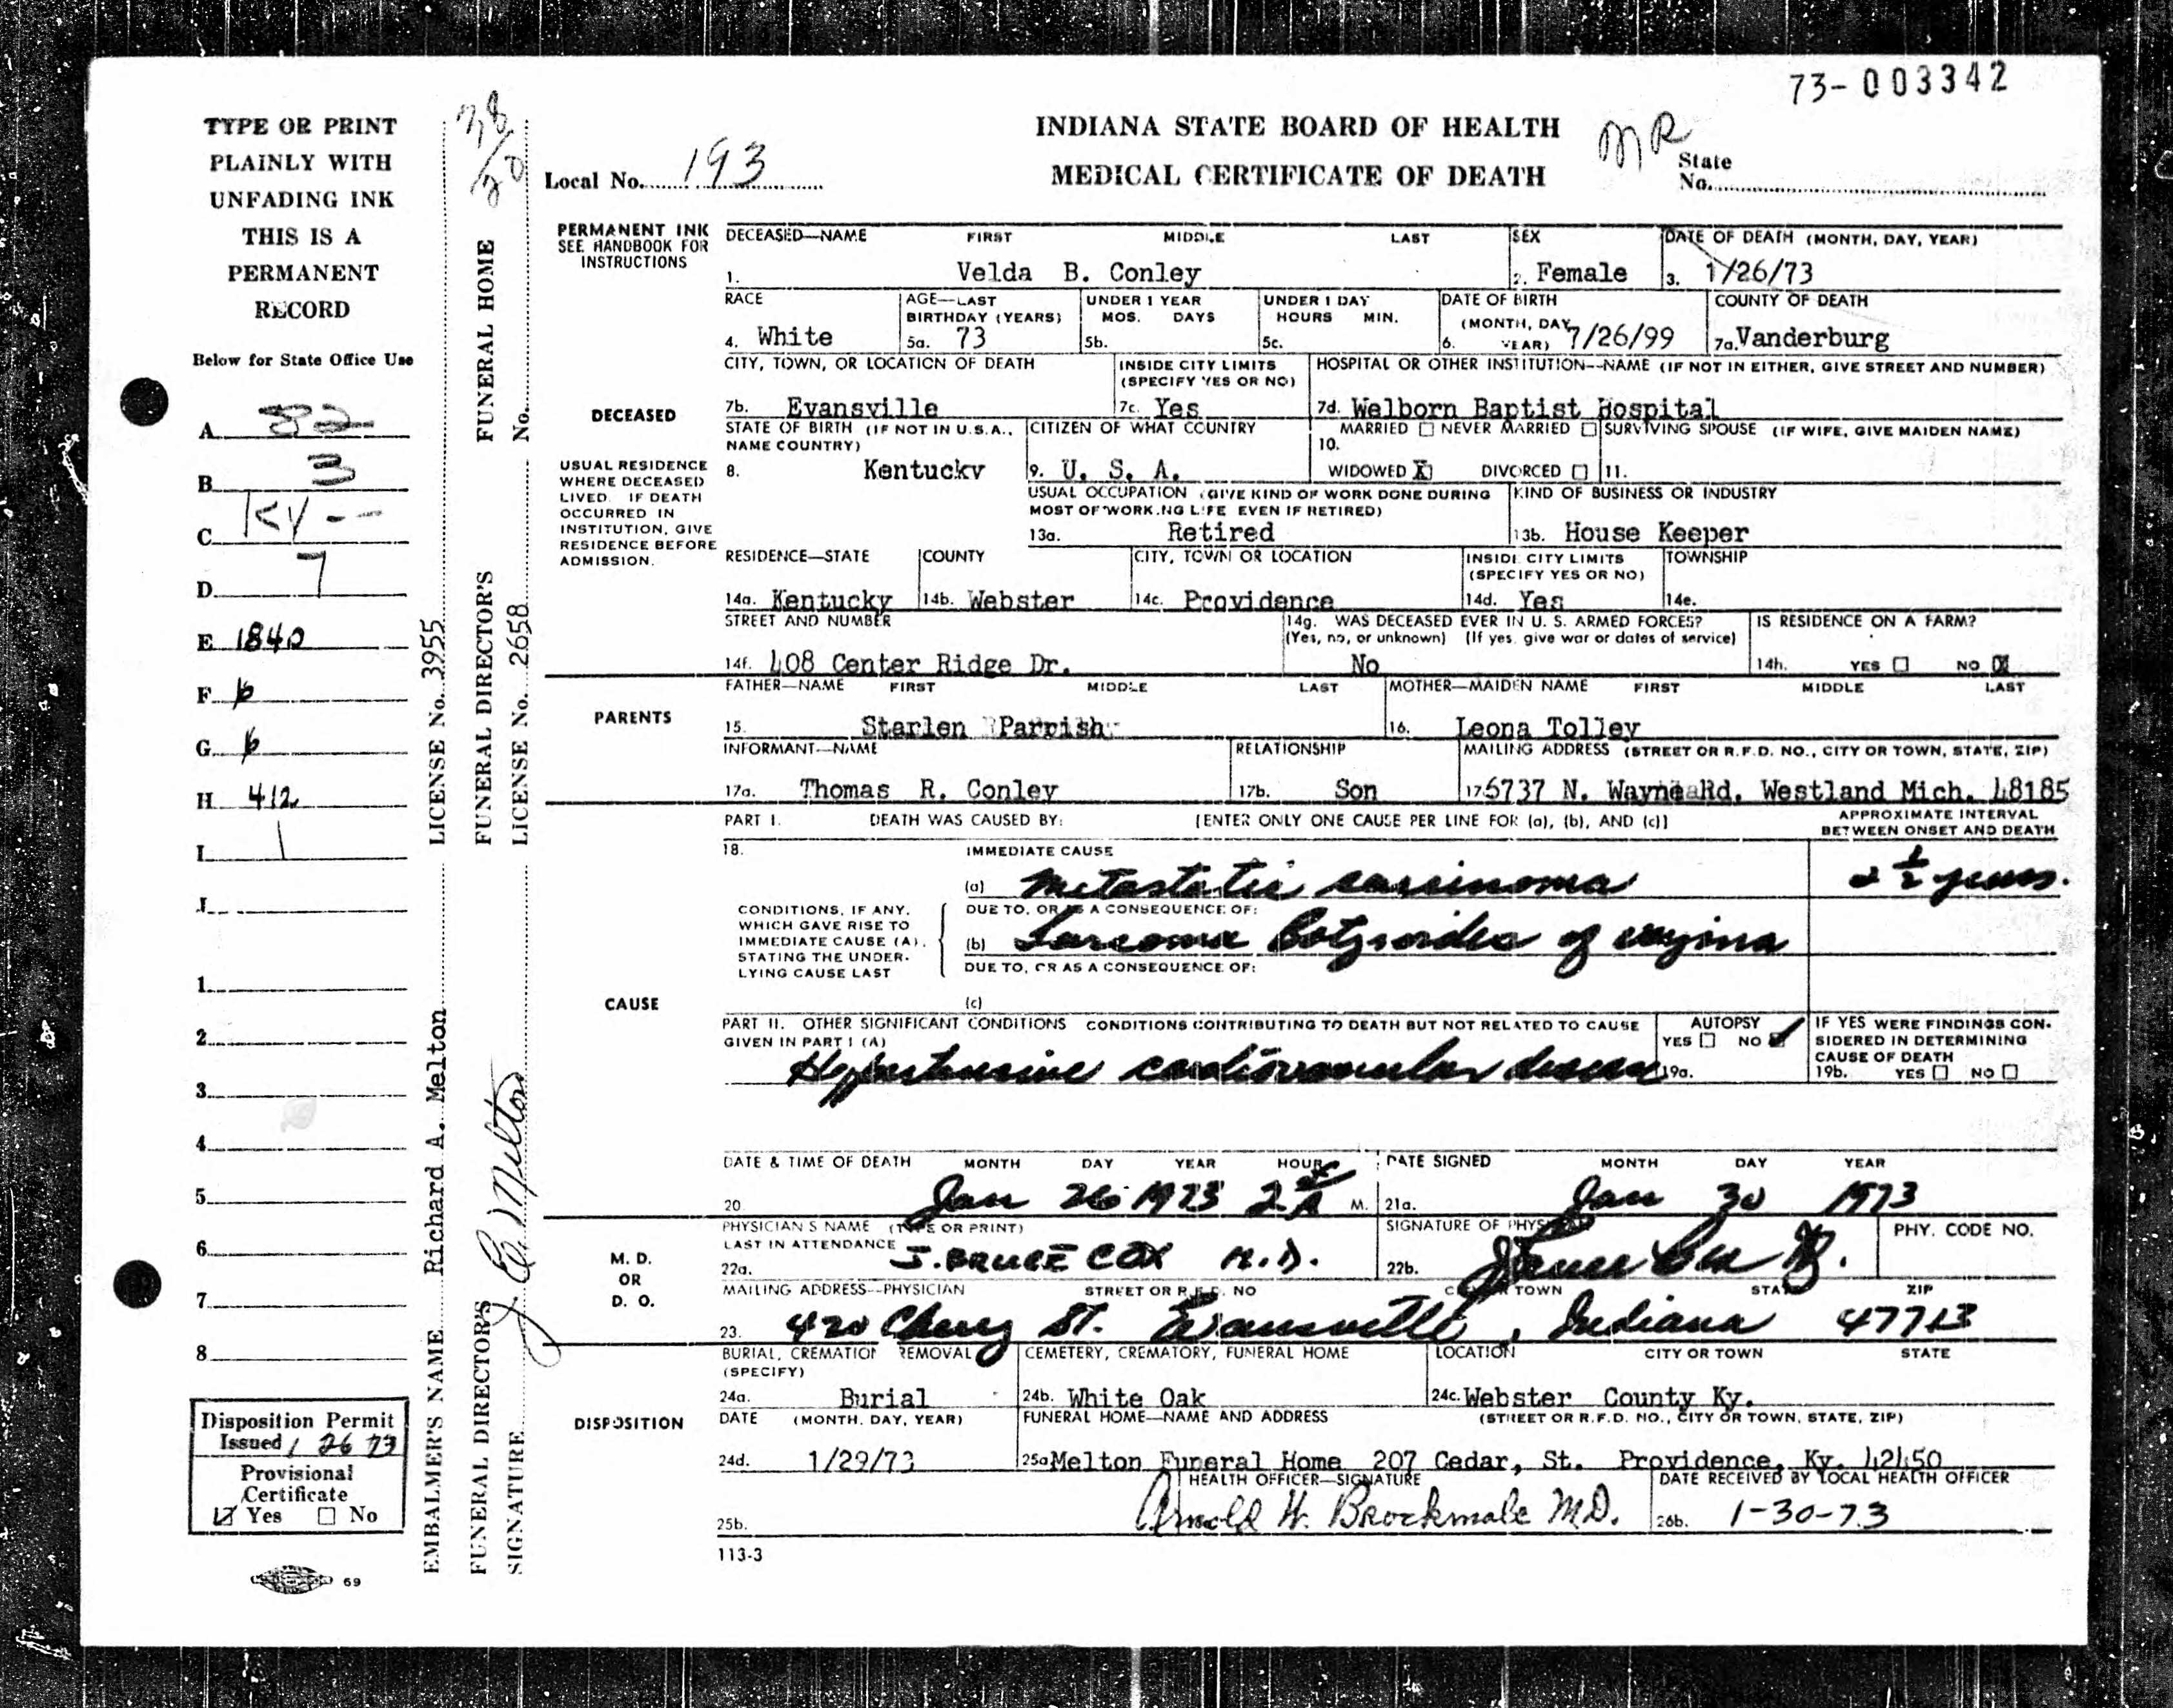 73-003342
TYPE OR PRINT
PLAINLY WITH
UNFADING INK
THIS IS A
PERMANENT
RECORD
Below for State Office Use
A 82
B 3
C Ky --
D 7
E 1840
F
G
H 412
I 1
J
1
2
3
4
5
6
7
8
Disposition Permit
Issued 1 26 73
Provisional
Certificate
Yes No
69
EMBALMER'S NAME Richard A. Melton LICENSE No. 3955
FUNERAL DIRECTOR'S FUNERAL DIRECTOR'S FUNERAL HOME
SIGNATURE J. C. Melton LICENSE No. 2658 No. 38/20
Local No. 193
INDIANA STATE BOARD OF HEALTH
MEDICAL CERTIFICATE OF DEATH
MR
State
No.
PERMANENT INK
SEE HANDBOOK FOR
INSTRUCTIONS
DECEASED—NAME FIRST MIDDLE LAST SEX DATE OF DEATH (MONTH, DAY, YEAR)
1. Velda B. Conley 2. Female 3. 1/26/73
RACE AGE—LAST BIRTHDAY (YEARS) UNDER 1 YEAR MOS. DAYS UNDER 1 DAY HOURS MIN. DATE OF BIRTH (MONTH, DAY, YEAR) COUNTY OF DEATH
4. White 5a. 73 5b. 5c. 6. 7/26/99 7a. Vanderburg
CITY, TOWN, OR LOCATION OF DEATH INSIDE CITY LIMITS (SPECIFY YES OR NO) HOSPITAL OR OTHER INSTITUTION--NAME (IF NOT IN EITHER, GIVE STREET AND NUMBER)
DECEASED
7b. Evansville 7c. Yes 7d. Welborn Baptist Hospital
STATE OF BIRTH (IF NOT IN U.S.A., NAME COUNTRY) CITIZEN OF WHAT COUNTRY MARRIED NEVER MARRIED SURVIVING SPOUSE (IF WIFE, GIVE MAIDEN NAME)
8. Kentucky 9. U. S. A. 10. WIDOWED X DIVORCED 11.
USUAL RESIDENCE
WHERE DECEASED
LIVED. IF DEATH
OCCURRED IN
INSTITUTION, GIVE
RESIDENCE BEFORE
ADMISSION.
USUAL OCCUPATION (GIVE KIND OF WORK DONE DURING MOST OF WORKING LIFE EVEN IF RETIRED) KIND OF BUSINESS OR INDUSTRY
13a. Retired 13b. House Keeper
RESIDENCE—STATE COUNTY CITY, TOWN OR LOCATION INSIDE CITY LIMITS (SPECIFY YES OR NO) TOWNSHIP
14a. Kentucky 14b. Webster 14c. Providence 14d. Yes 14e.
STREET AND NUMBER 14g. WAS DECEASED EVER IN U. S. ARMED FORCES? (Yes, no, or unknown) (If yes, give war or dates of service) IS RESIDENCE ON A FARM?
14f. 408 Center Ridge Dr. No 14h. YES NO X
PARENTS
FATHER—NAME FIRST MIDDLE LAST MOTHER—MAIDEN NAME FIRST MIDDLE LAST
15. Starlen Parrish 16. Leona Tolley
INFORMANT—NAME RELATIONSHIP MAILING ADDRESS (STREET OR R.F.D. NO., CITY OR TOWN, STATE, ZIP)
17a. Thomas R. Conley 17b. Son 17 6737 N. Wayne Rd. Westland Mich. 48185
PART I. DEATH WAS CAUSED BY: [ENTER ONLY ONE CAUSE PER LINE FOR (a), (b), AND (c)] APPROXIMATE INTERVAL BETWEEN ONSET AND DEATH
18. IMMEDIATE CAUSE
(a) Metastatic carcinoma 2 1/2 years.
CONDITIONS, IF ANY,
WHICH GAVE RISE TO
IMMEDIATE CAUSE (A),
STATING THE UNDER-
LYING CAUSE LAST
DUE TO, OR AS A CONSEQUENCE OF:
(b) Sarcoma Botryoides of vagina
DUE TO, OR AS A CONSEQUENCE OF:
CAUSE
(c)
PART II. OTHER SIGNIFICANT CONDITIONS CONDITIONS CONTRIBUTING TO DEATH BUT NOT RELATED TO CAUSE GIVEN IN PART I (A)
Hypertensive cardiovascular disease
AUTOPSY
YES NO
19a.
IF YES WERE FINDINGS CON-
SIDERED IN DETERMINING
CAUSE OF DEATH
19b. YES NO
DATE & TIME OF DEATH MONTH DAY YEAR HOUR DATE SIGNED MONTH DAY YEAR
20. Jan 26 1973 2 A M. 21a. Jan 30 1973
M. D.
OR
D. O.
PHYSICIAN'S NAME (TYPE OR PRINT) LAST IN ATTENDANCE SIGNATURE OF PHYSICIAN PHY. CODE NO.
22a. J. BRUCE COX M.D. 22b. J Bruce Cox M.D.
MAILING ADDRESS--PHYSICIAN STREET OR R.F.D. NO CITY OR TOWN STATE ZIP
23. 420 Cherry St. Evansville, Indiana 47713
DISPOSITION
BURIAL, CREMATION REMOVAL (SPECIFY) CEMETERY, CREMATORY, FUNERAL HOME LOCATION CITY OR TOWN STATE
24a. Burial 24b. White Oak 24c. Webster County Ky.
DATE (MONTH, DAY, YEAR) FUNERAL HOME—NAME AND ADDRESS (STREET OR R.F.D. NO., CITY OR TOWN, STATE, ZIP)
24d. 1/29/73 25a Melton Funeral Home 207 Cedar, St. Providence, Ky. 42450
HEALTH OFFICER—SIGNATURE DATE RECEIVED BY LOCAL HEALTH OFFICER
25b. Arnold H. Brockmole M.D. 26b. 1-30-73
113-3